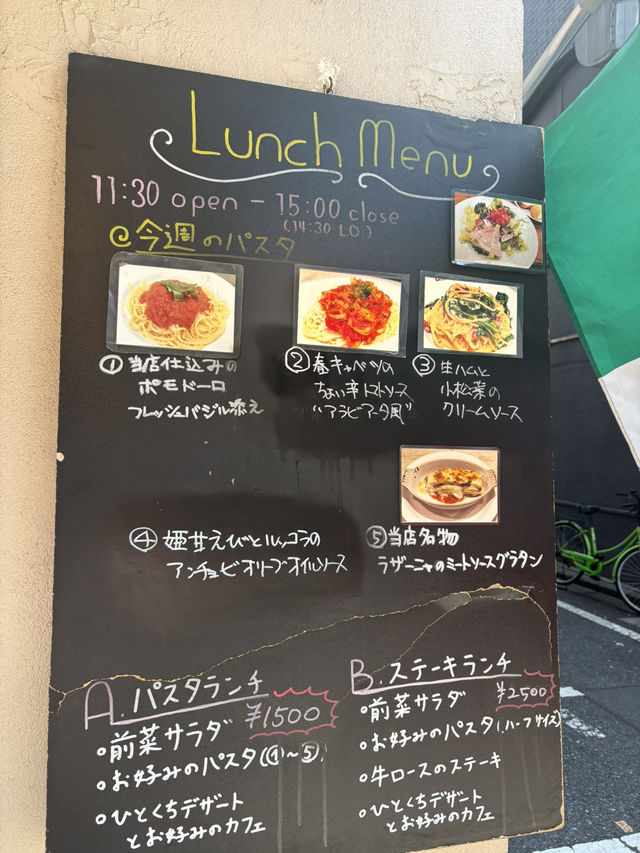 Lunch Menu
11:30 open - 15:00 close
(14:30 L.O.)
今週のパスタ
① 当店仕込みの
ポモドーロ
フレッシュバジル添え
② 春キャベツの
ちょい辛トマトソース
"アラビアータ風"
③ 生ハムと
小松菜の
クリームソース
④ 姫甘えびとルッコラの
アンチョビオリーブオイルソース
⑤ 当店名物
ラザーニャのミートソースグラタン
A. パスタランチ
¥1500
○前菜サラダ
○お好みのパスタ(①~⑤)
○ひとくちデザート
とお好みのカフェ
B. ステーキランチ
¥2500
○前菜サラダ
○お好みのパスタ(ハーフサイズ)
○牛ロースのステーキ
○ひとくちデザート
とお好みのカフェ